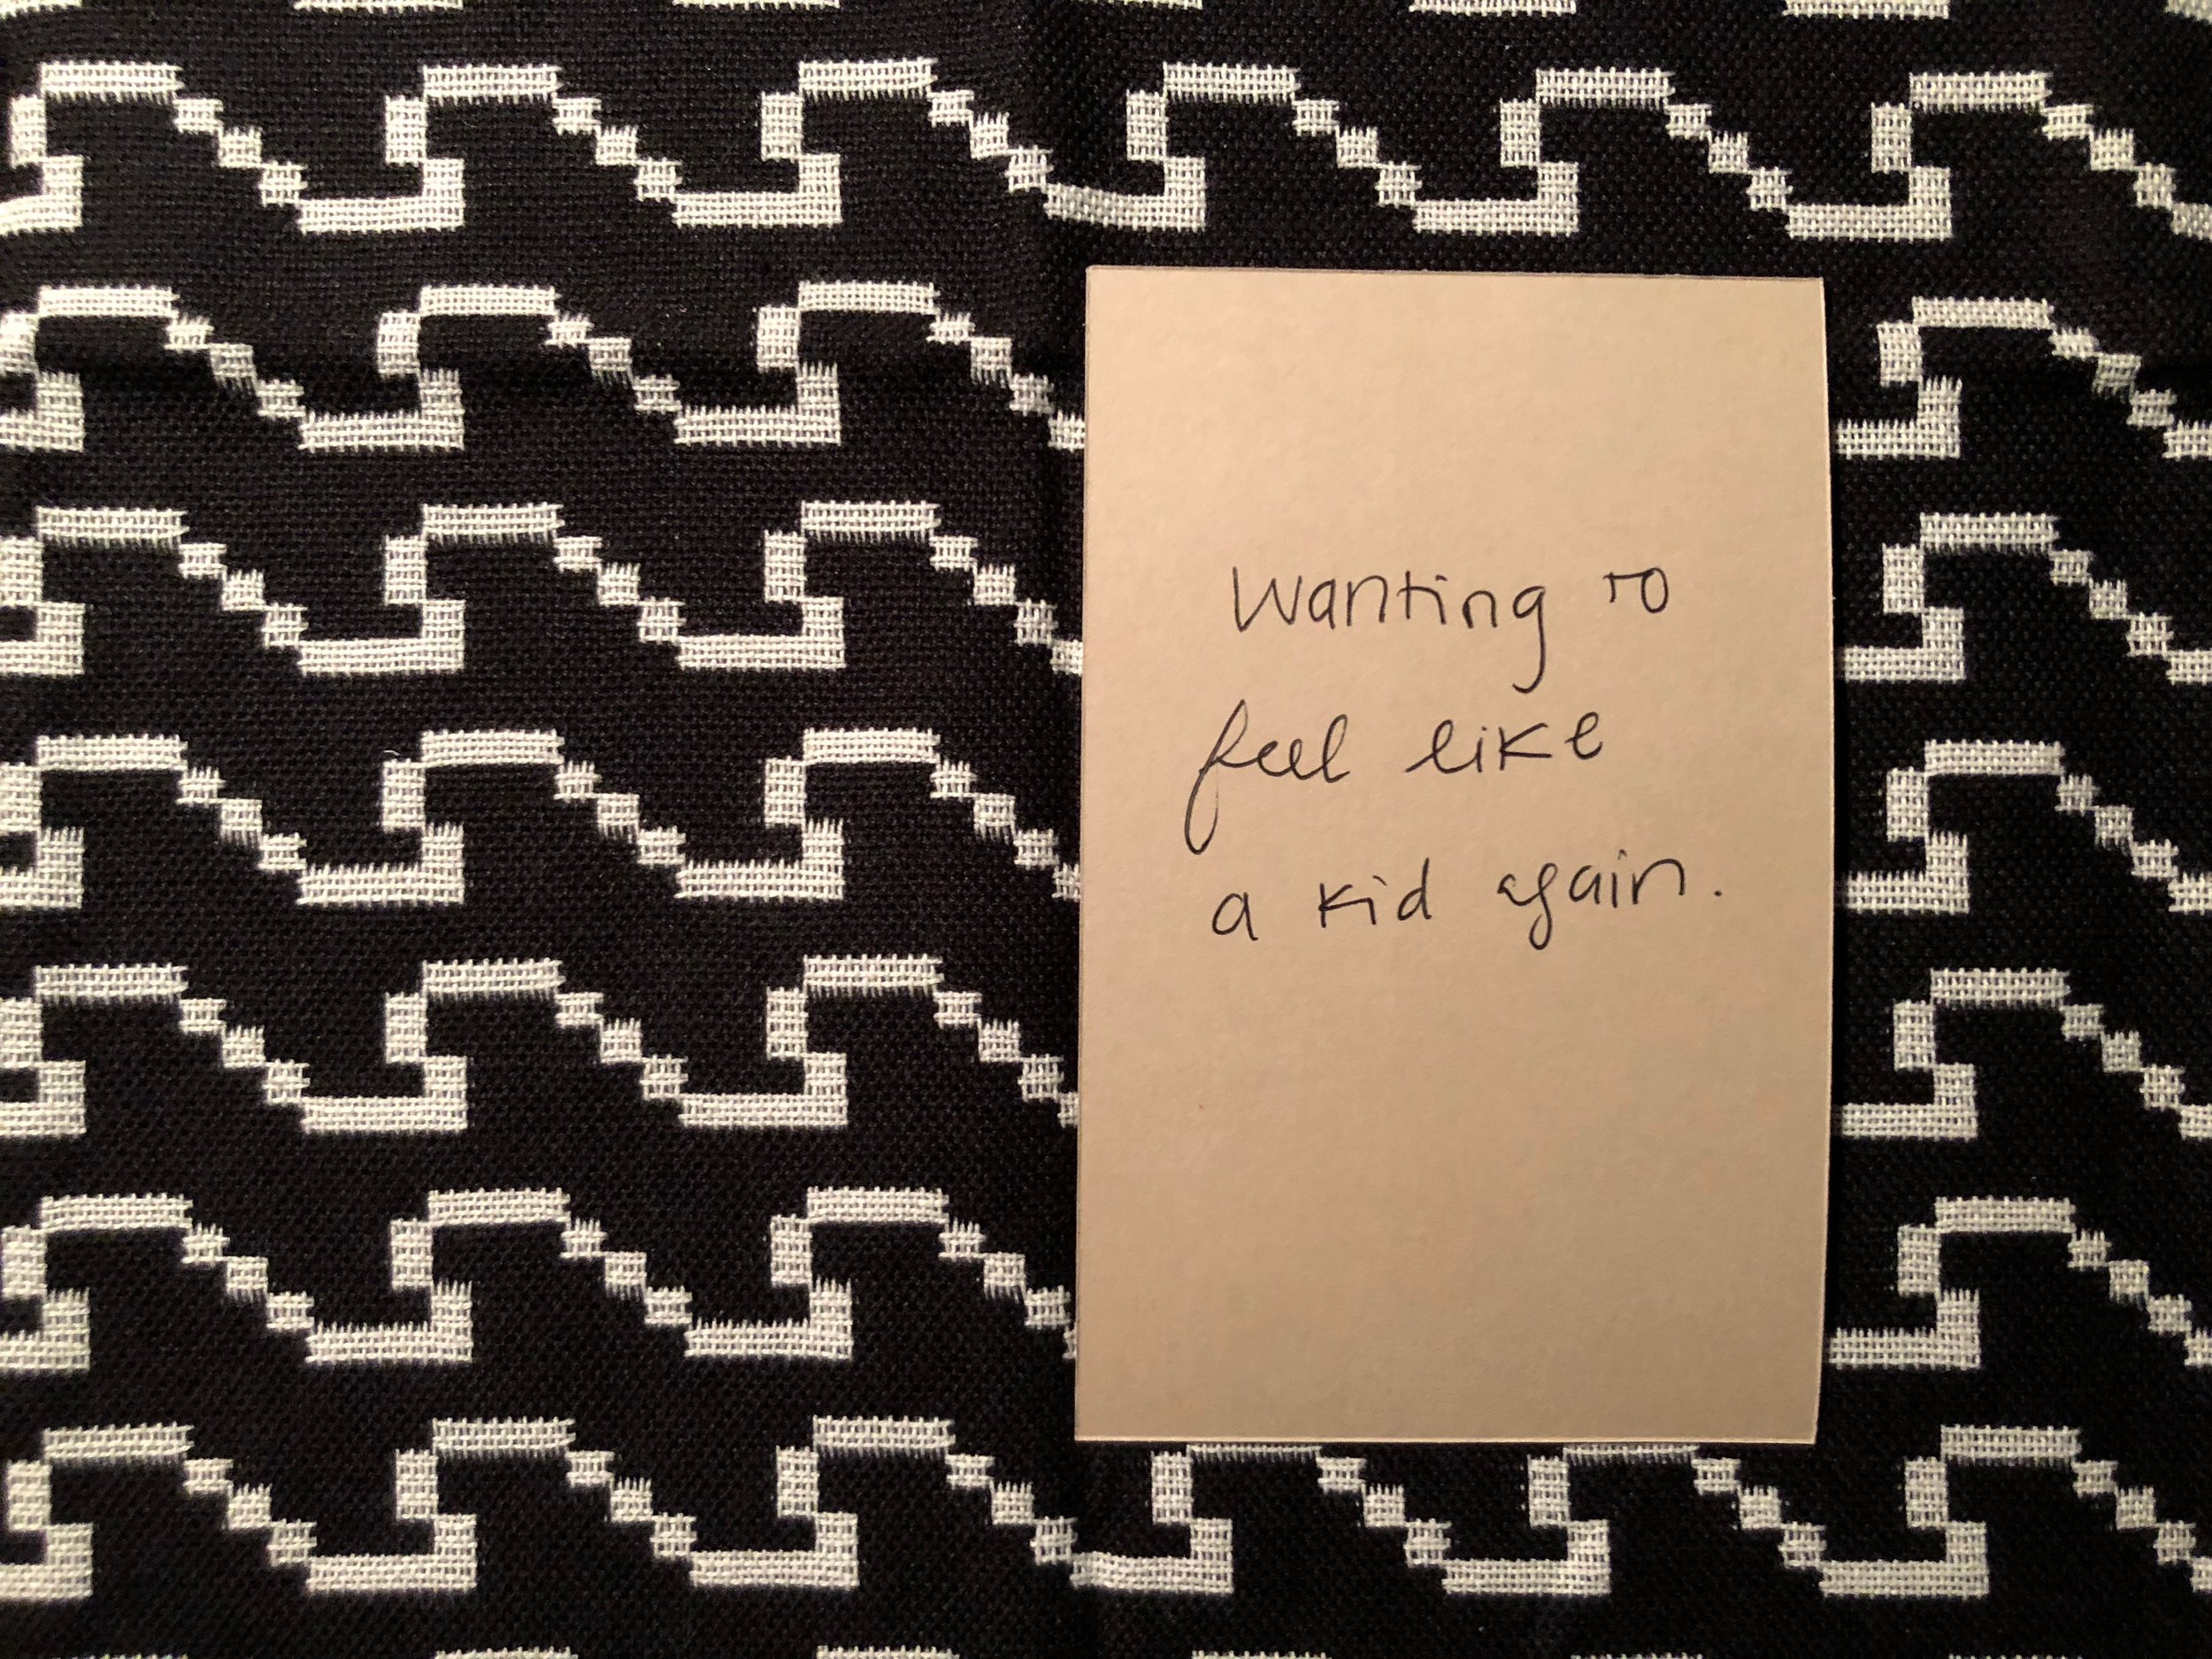 Wanting to
feel like
a kid again.